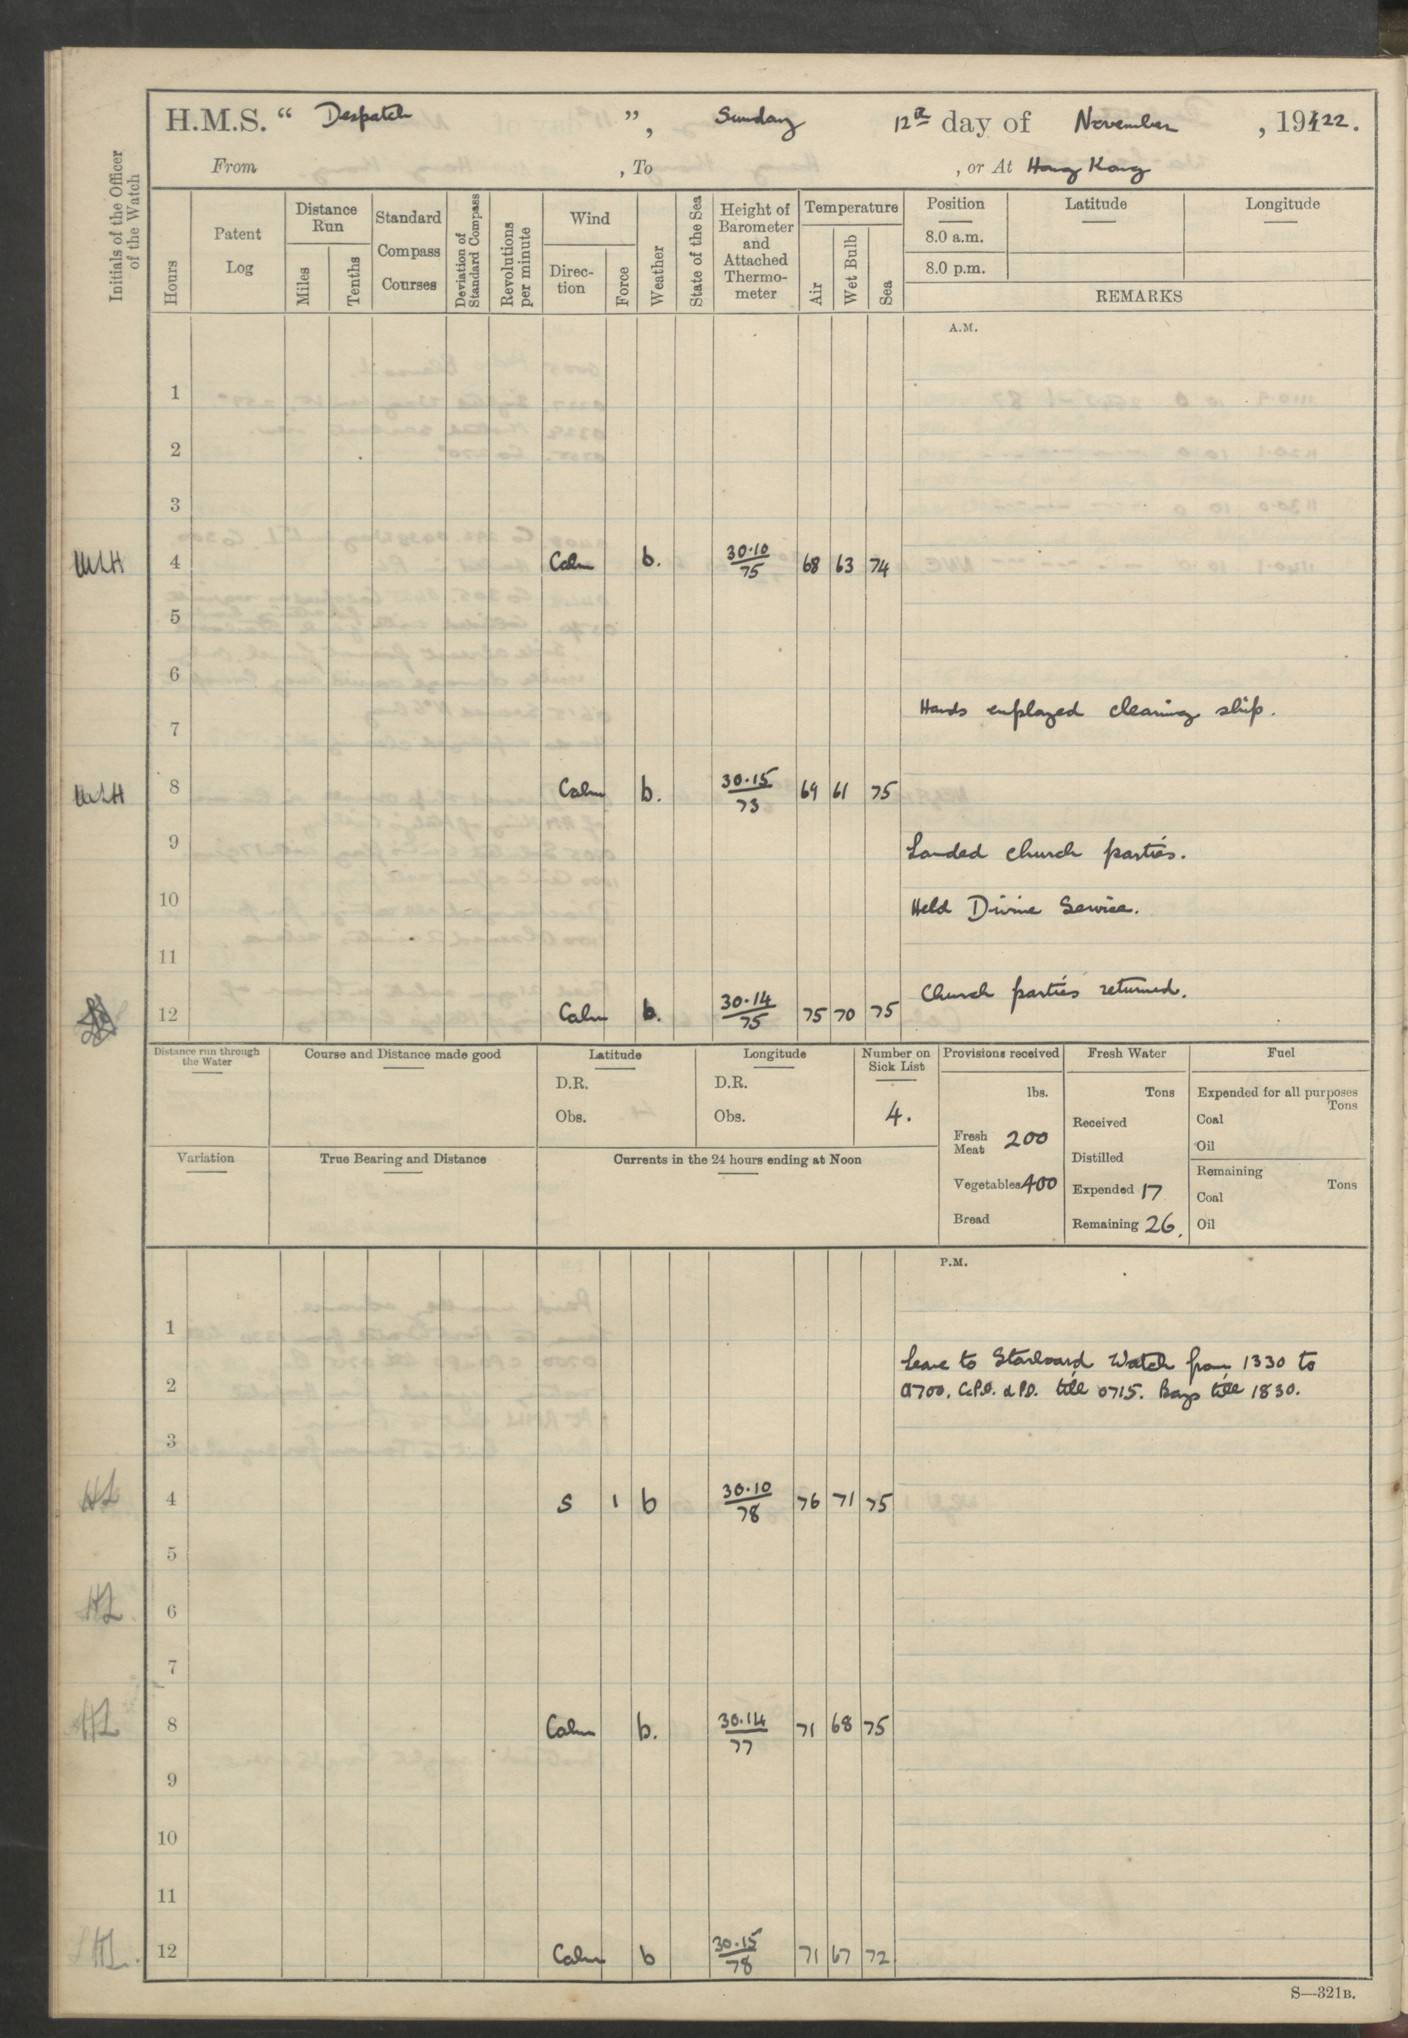 H.M.S. " Despatch ", Sunday 12th day of November , 1922.
From , To , or At Hong Kong
Initials of the Officer of the Watch
Hours
Patent Log
Distance Run
Miles
Tenths
Standard Compass Courses
Deviation of Standard Compass
Revolutions per minute
Wind
Direc-tion
Force
Weather
State of the Sea
Height of Barometer and Attached Thermo-meter
Temperature
Air
Wet Bulb
Sea
Position Latitude Longitude
8.0 a.m.
8.0 p.m.
REMARKS
A.M.
1
2
3
4 Calm b. 30.10/75 68 63 74
5
6
Hands employed cleaning ship.
7
8 Calm b. 30.15/73 69 61 75
9 Landed church parties.
10 Held Divine Service.
11
Church parties returned.
12 Calm b. 30.14/75 75 70 75
Distance run through the Water
Course and Distance made good
Latitude
D.R.
Obs.
Longitude
D.R.
Obs.
Number on Sick List
4.
Provisions received
lbs.
Fresh Meat 200
Vegetables 400
Bread
Fresh Water
Tons
Received
Distilled
Expended 17
Remaining 26.
Fuel
Expended for all purposes
Tons
Coal
Oil
Remaining
Tons
Coal
Oil
Variation
True Bearing and Distance
Currents in the 24 hours ending at Noon
P.M.
1
Leave to Starboard Watch from 1330 to
2 0700. C.P.O. & P.O. till 0715. Boys till 1830.
3
HL 4 S 1 b 30.10/78 76 71 75
5
HL 6
7
HL 8 Calm b. 30.14/77 71 68 75
9
10
11
HL 12 Calm b 30.15/78 71 67 72
S—321B.